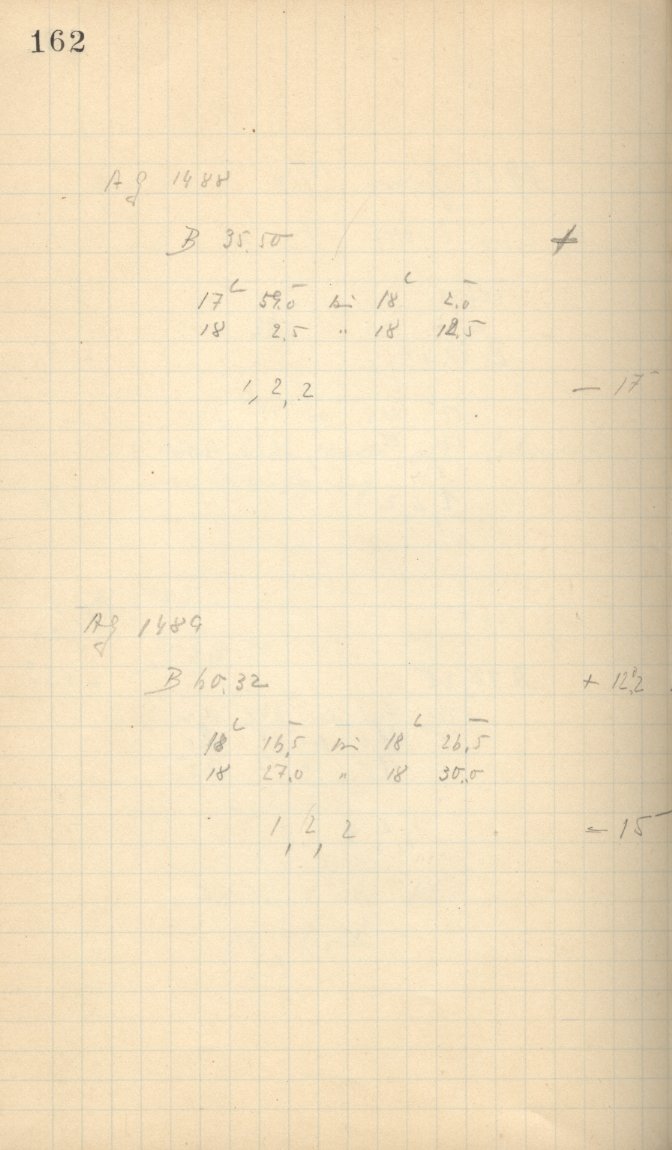 162
Ag 1488
B 35.50 +
17h 59.0m bis 18h 2.0m
18 2.5 " 18 12.5
1, 2, 2 — 17m
Ag 1489
B 60.32 + 12.2
18h 16.5m bis 18h 26.5m
18 27.0 " 18 30.0
1, 2, 2 — 15m